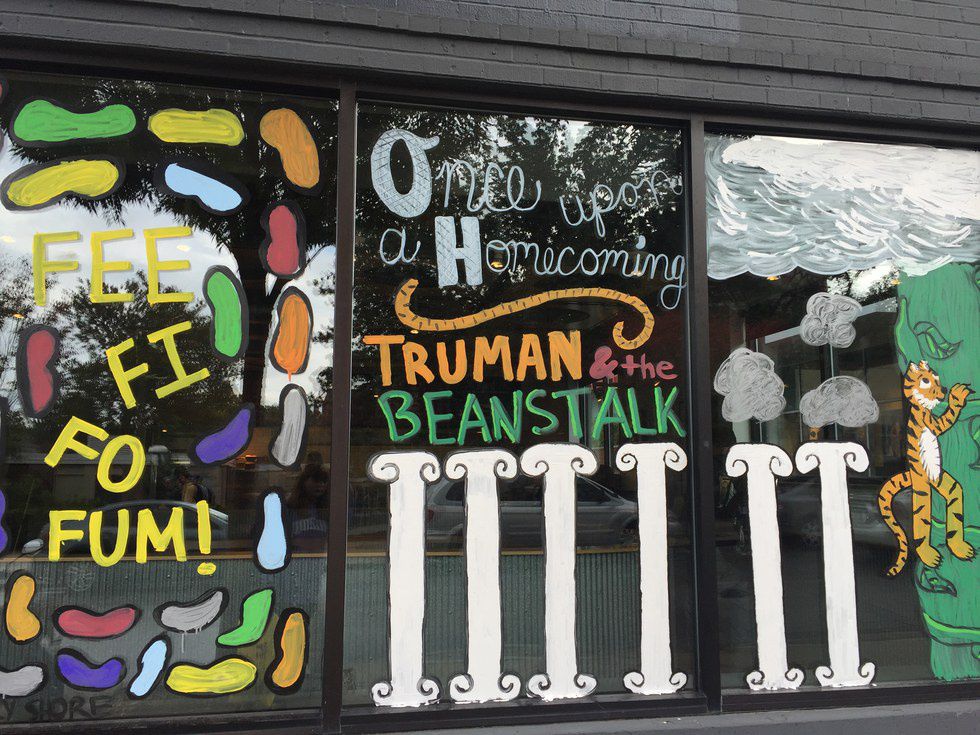 FEE
FI
FO
FUM!
Once upon
a Homecoming
TRUMAN & the
BEANSTALK